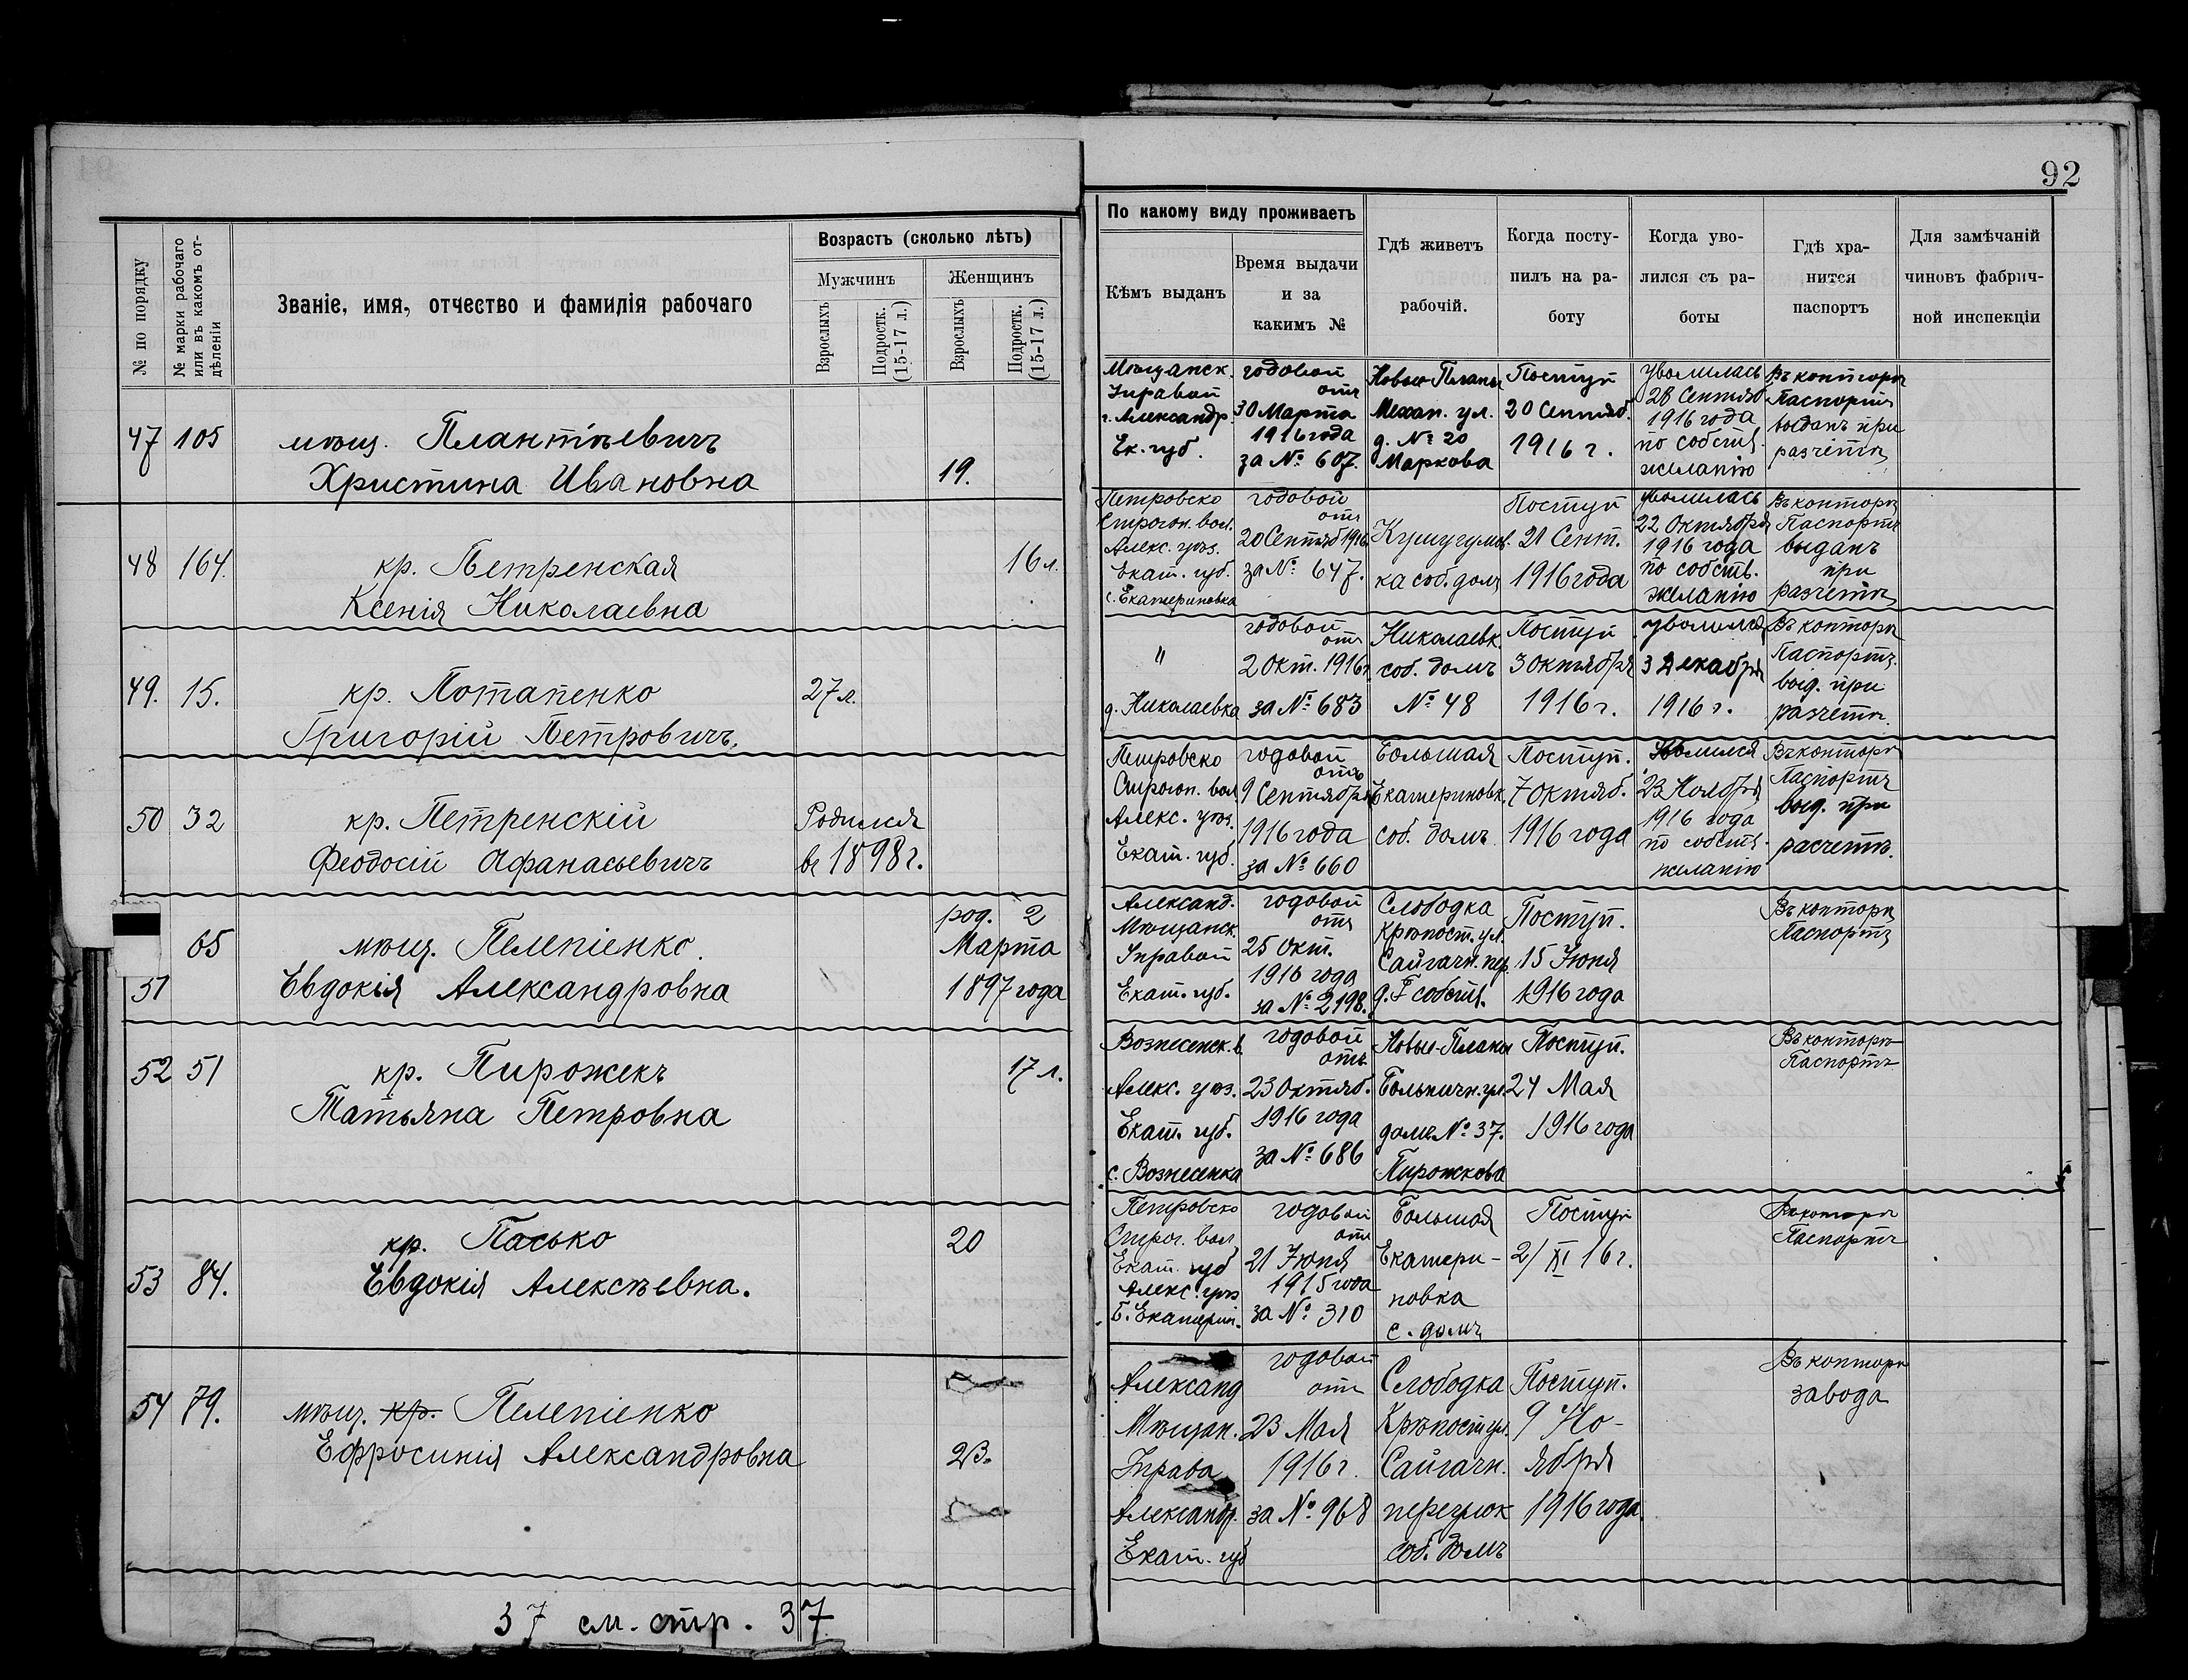 92
№ по порядку
№ марки рабочаго или въ какомъ отдѣленіи
Званіе, имя, отчество и фамилія рабочаго
Возрастъ (сколько лѣтъ)
Мужчинъ
Женщинъ
Взрослыхъ
Подростк. (15-17 л.)
Взрослыхъ
Подростк. (15-17 л.)
По какому виду проживаетъ
Кѣмъ выданъ
Время выдачи
и за
какимъ №
Гдѣ живетъ
рабочій.
Когда посту-
пилъ на ра-
боту
Когда уво-
лился съ ра-
боты
Гдѣ хра-
нится
паспортъ
Для замѣчаній
чиновъ фабрич-
ной инспекціи
47 105
мѣщ. Плантѣевичъ
Христина Ивановна
19.
Мѣщанск.
Управой
г. Александр.
Ек. губ.
годовой
отъ
30 Марта
1916 года
за № 607.
Новые-Планы
Механ. ул.
д. № 20
Маркова
Поступ
20 Сентяб.
1916 г.
Уволилась
28 Сентяб
1916 года
по собств.
желанію
Въ конторѣ
Паспортъ
выданъ при
разчетѣ
48 164.
кр. Петренская
Ксенія Николаевна
16 л.
Петровско
Строгон. вол.
Алекс. уѣз.
Екат. губ.
с. Екатериновка
годовой
отъ
20 Сентяб 1916
за № 647.
Кушугумов.
ка соб. домъ
Поступ
21 Сент.
1916 года
уволилась
22 Октября
1916 года
по собств.
желанію
Въ конторѣ
Паспортъ
выданъ
при
разчетѣ
49. 15.
кр. Потапенко
Григорій Петровичъ
27 л.
"
д. Николаевка
годовой
отъ
2 Окт. 1916 г
за № 683
Николаевк.
соб. домъ
№ 48
Поступ
3 Октября
1916 г.
уволился
3 Декабря
1916 г.
Въ конторѣ
Паспортъ
выд. при
разчетѣ.
50 32
кр. Петренскій
Феодосій Афанасьевичъ
Родился
в 1898 г.
Петровско
Строгон. вол
Алекс. уѣз.
Екат. губ.
годовой
отъ
9 Сентября
1916 года
за № 660
Большая
Екатериновк.
соб. домъ
Поступ.
7 Октяб.
1916 года
Уволился
23 Ноября
1916 года
по собств.
желанію
Въ конторѣ
Паспортъ
выд. при
расчетѣ.
51 65
мѣщ. Пелепіенко.
Евдокія Александровна
род. 2
Марта
1897 года
Александ.
Мѣщанск.
Управой
Екат. губ.
годовой
отъ
25 Окт.
1916 года
за № 2198.
Слободка
Крѣпост. ул.
Сайгачн. пер.
собств.
Поступ.
15 Іюня
1916 года
Въ конторѣ
Паспортъ
52 51
кр. Пирожекъ
Татьяна Петровна
17 л.
Вознесенск. в.
Алекс. уѣз.
Екат. губ.
с. Вознесенка
годовой
отъ
23 Октяб.
1916 года
за № 686
Новые-Планы
Больничн. ул.
домъ № 37.
Пирожкова
Поступ.
24 Мая
1916 года
Въ конторѣ
Паспортъ
53 84.
кр. Пасько
Евдокія Алексѣевна.
20
Петровско
Строг. вол.
Екат. губ
Алекс. уѣз
Б. Екатерин.
годовой
отъ
21 Іюня
1915 года
за № 310
Большая
Екатери-
новка
с. домъ
Поступ
2/XI 16 г.
Въ конторѣ
Паспортъ
54 79.
мѣщ. кр. Пелепіенко
Ефросинія Александровна
23.
Александ
Мѣщан.
Управа
Александр.
Екат. губ
годовой
отъ
23 Мая
1916 г.
за № 968
Слободка
Крѣпост ул.
Сайгачн.
переулок
соб. домъ
Поступ.
9 Но-
ября
1916 года.
Въ конторѣ
завода
37 см. стр. 37